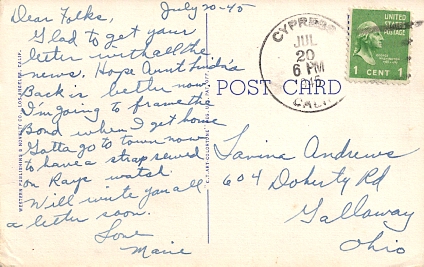 Dear Folks, July 20-45
Glad to get your
letter with all the
news. Hope Aunt Linda's
Back is better now
I'm going to frame the
Bond when I get home
Gotta go to town now
to have a strap sewed
on Rays watch
Will write you all
a letter soon.
Love
Marie
WESTERN PUBLISHING & NOVELTY CO., LOS ANGELES, CALIF.
POST CARD
CYPRESS
JUL
20
6 PM
1945
CALIF.
UNITED
STATES
POSTAGE
1 CENT 1
Lavina Andrews
604 Doherty Rd
Gallaway
Ohio